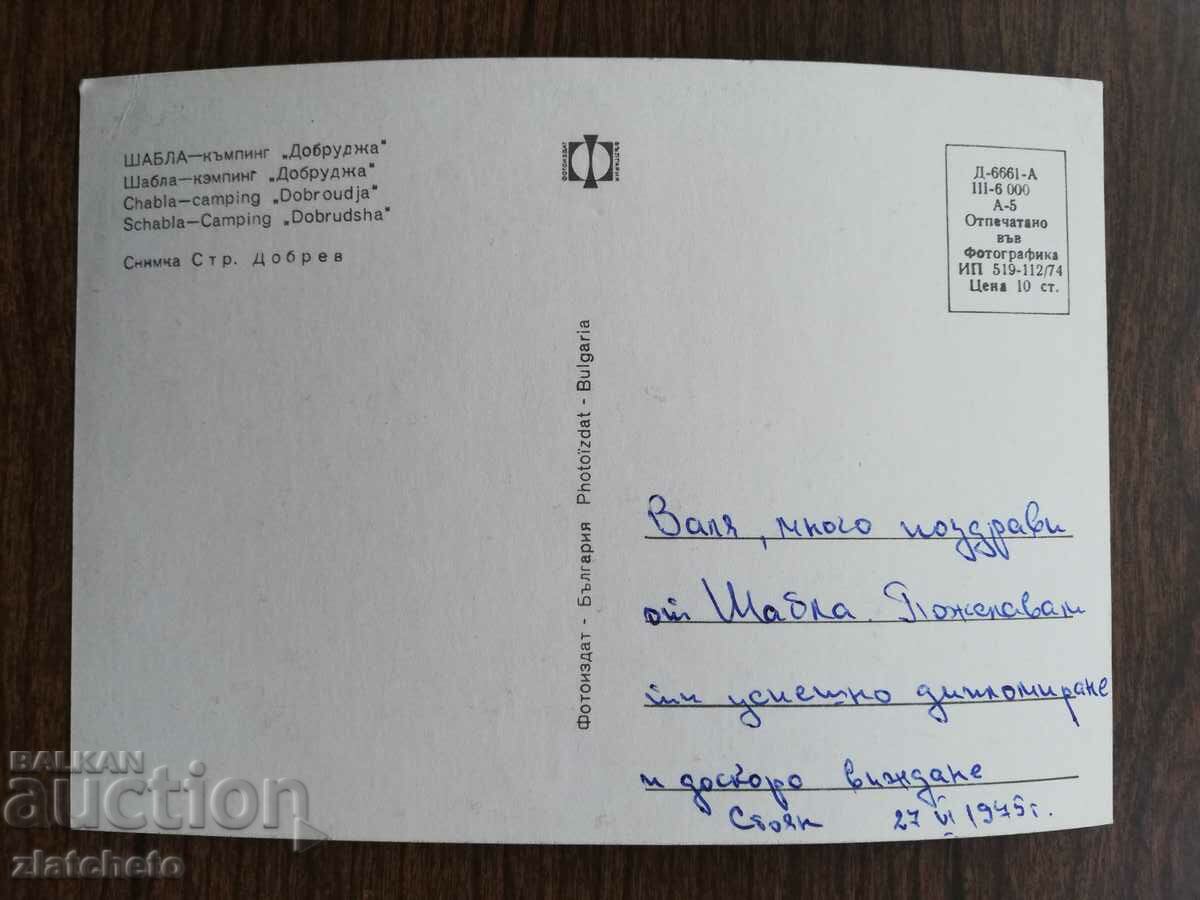 ШАБЛА—къмпинг „Добруджа“
Шабла—кэмпинг „Добруджа“
Chabla—camping „Dobroudja“
Schabla—Camping „Dobrudsha“
Снимка Стр. Добрев
ФОТОИЗДАТ
БЪЛГАРИЯ
Д-6661-А
III-6 000
А-5
Отпечатано
във
Фотографика
ИП 519-112/74
Цена 10 ст.
Фотоиздат - България Photoïzdat - Bulgaria
Валя, много поздрави
от Шабла. Пожелавам
ти успешно дипломиране
и доскоро виждане
Стоян 27 VI 1975 г.
BALKAN
auction
zlatcheto